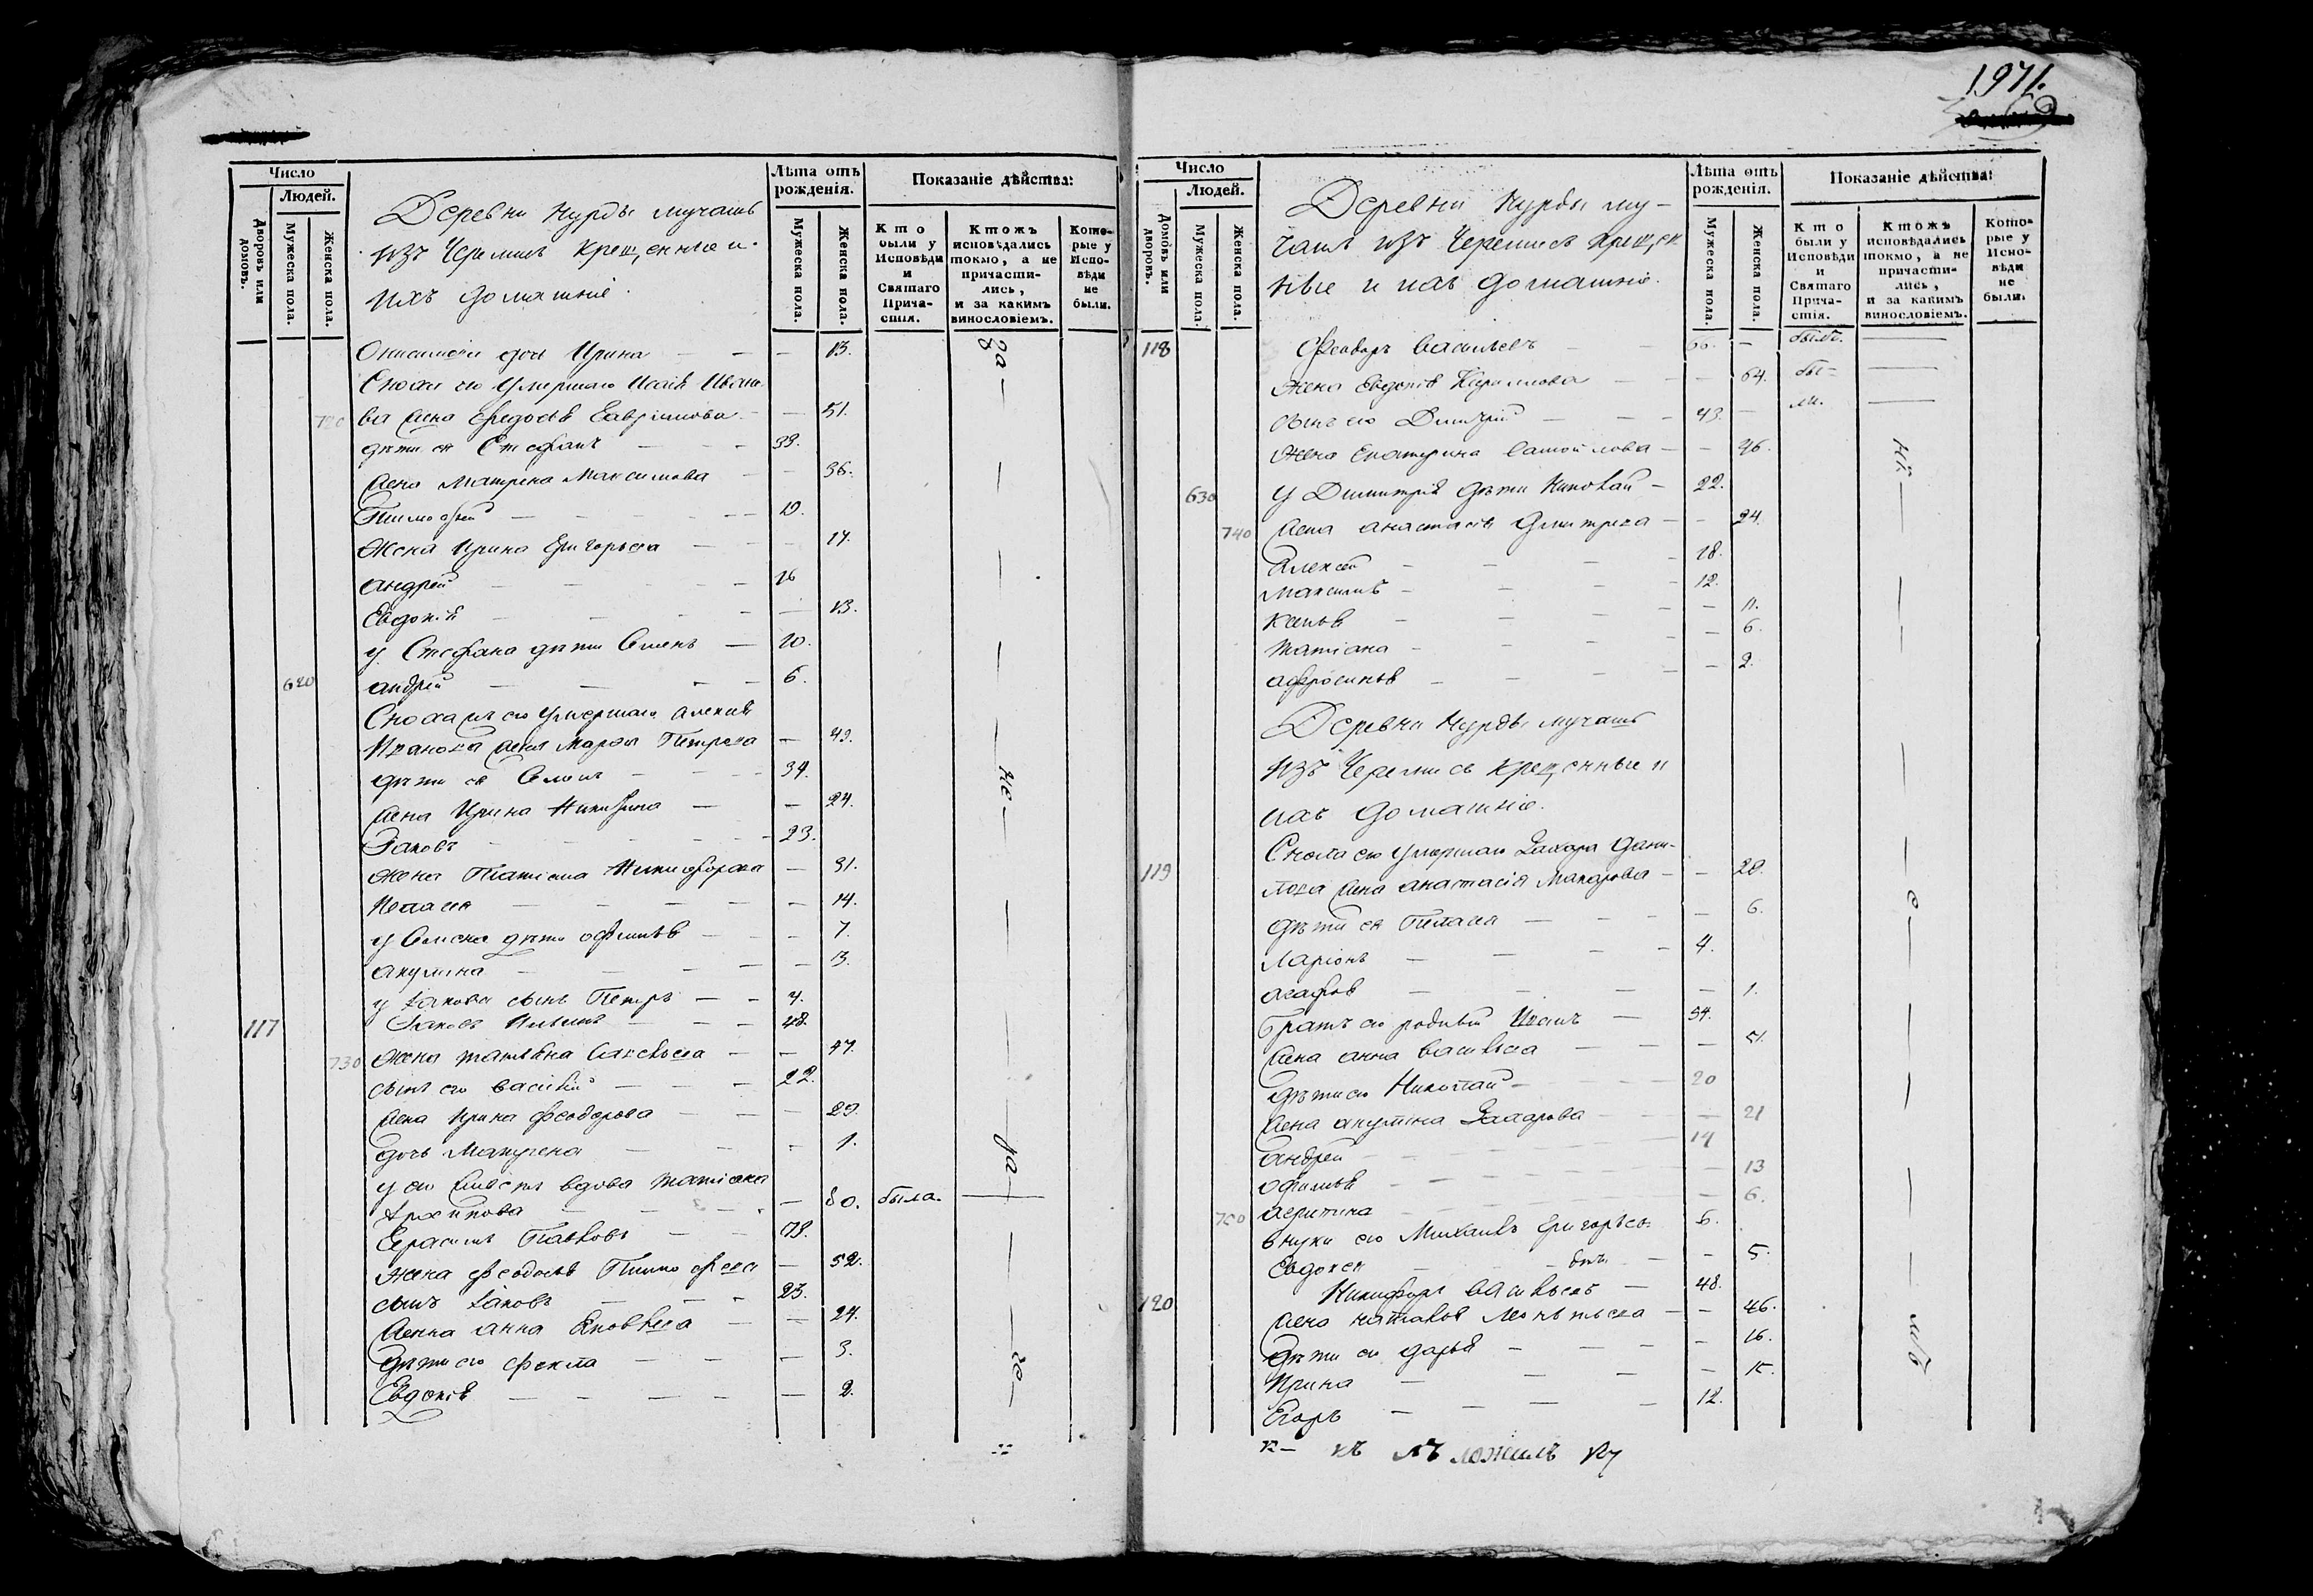 1971.
Число
Людей.
Дворовъ или домовъ.
Мужеска пола.
Женска пола.
Деревни Курды мучашъ
изъ Черемисъ крещенные и
ихъ домашніе.
Лѣта отъ рожденія.
Мужеска пола.
Женска пола.
Показаніе дѣйства:
Кто были у Исповѣди и Святаго Прича- стія.
Ктожъ исповѣдались токмо, а не причасти- лись, и за какимъ винословіемъ.
Кото- рые у Испо- вѣди не были.
дочь Ирина — 13.
Снохи его умершаго Исаія Ивано-
720 ва жена Феодосія Гаврилова — 51.
дѣти ея Стефанъ — 33.
жена Матрена Максимова — 36.
Тимофей — 19.
жена Ирина Григорьева — 17.
Андрей — 16
Евдокія — 13.
у Стефана дѣти Семенъ — 10.
620 Андрей — 6.
Сноха его умершаго Алексія
Иванова жена Марфа Петрова — 49.
дѣти ея Семенъ — 34.
жена Ирина — 24.
Іаковъ — 23.
жена Татіана Никифорова — 31.
Пелагея — 14.
у Семена дѣти Офимія — 7.
Акулина — 3.
у Іакова сынъ Петръ — 4.
117 Іаковъ — 48.
730 жена Татьяна Алексѣева — 47.
сынъ его Василій — 22.
жена Ирина Феодорова — 29.
дочь Матрена — 1.
у его вдова Татіана
Архипова — 80. была.
Герасимъ Павловъ —
жена Феодосья Тимофеева — 52.
сынъ Іаковъ — 23.
жена Анна Яковлева — 24.
дѣти его Фекла — 3.
Евдокія — 2.
за
не
Число
Людей.
Домовъ или дворовъ.
Мужеска пола.
Женска пола.
Деревни Курды му-
чашъ изъ Черемисъ крещен
ные и ихъ домашніе.
Лѣта отъ рожденія.
Мужеска пола.
Женска пола.
Показаніе дѣйства:
Кто были у Исповѣди и Святаго Прича- стія.
Ктожъ исповѣдались токмо, а не причасти- лись, и за какимъ винословіемъ.
Кото- рые у Испо- вѣди не были.
118 Феодоръ Васильевъ — 66. — былъ.
жена Евдокія Кириллова — 64. бы-
сынъ его Димитрій — 43. — ли.
жена Екатерина Самойлова — 46.
630 у Димитрія дѣти Николай — 22.
740 жена Анастасія Дмитрева — 24.
Алексей — 18.
Максимъ — 12.
— 11.
Татіана — 6.
Афросинья — 2.
Деревни Курды мучашъ
изъ Черемисъ крещенные и
ихъ домашніе.
Сноха его умершаго Захара Дани-
119 лова жена Анастасія Макарова — 28.
дѣти ея Пелагея — 6.
Ларіонъ — 4.
Агафья — 1.
Братъ его родный Иванъ — 54.
жена Анна Васильева — 51.
дѣти его Николай — 20
жена Акулина Захарова — 21
Андрей — 14
Офимья — 13
750 — 6.
внуки его Михаилъ Григорьевъ 6.
Евдокея — 5.
120 Никифоръ Васильевъ — 48.
жена Наталья Леонтьева — 46.
дѣти его Дарья — 16.
Ирина — 15.
Егоръ — 12.
къ лъ ложилъ